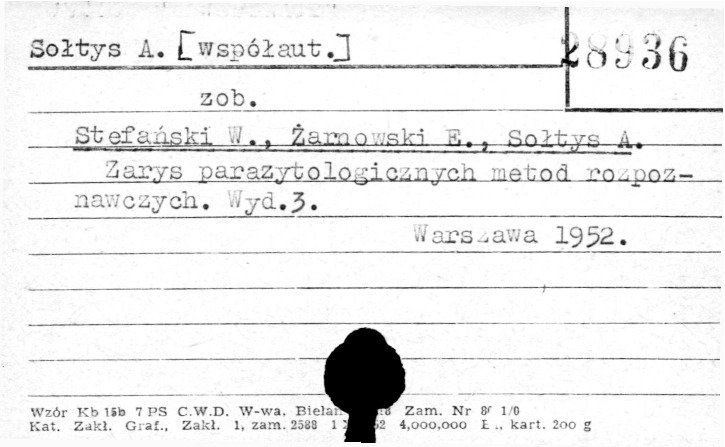 Sołtys A. [współaut.]
28936
zob.
Stefański W., Żarnowski E., Sołtys A.
Zarys parazytologicznych metod rozpoz-
nawczych. Wyd.3.
Warszawa 1952.
Wzór Kb 15b 7 PS C.W.D. W-wa, Zam. Nr
Kat. Zakł. Graf., Zakł. 1, zam. 2588 4,000,000 kart. 200 g